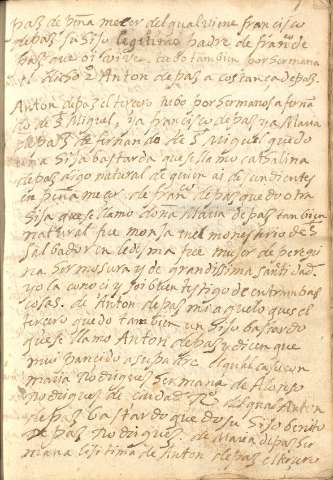 paz de peña mecer del qual viene francisco
de paz su hijo legitimo padre de franco de
paz que oi vive. tubo tambien por hermana
el Anton de paz a costança de paz.
Anton de paz el tercero tubo por hermanos a ferna
do de S Miguel, i a francisco de paz y a Maria
de paz. de fernando de S Miguel quedo
una hija bastarda que se llamo cathalina
de paz digo natural de quien ai descendientes
en peña mecer. de franco de paz quedo otra
hija que se llamo doña Maria de paz tambien
natural fue monja en el monesterio de S
Salbador en ledesma fue muger de peregri
na hermosura y de grandissima santidad
yo la conoci y soi buen testigo de entrambas
cosas. de Anton de paz mi aguelo que es el
tercero quedo tambien un hijo bastardo
que se llamo Anton de paz y dicen que
mui parecido a su padre el qual caso con
maria Rodriguez hermana de Alonso
Rodriguez de ciudad Ro. del qual Anton
de paz bastardo quedo su hijo benito
de paz Rodriguez. de Maria de paz her
mana legitima de Anton de paz el tercero